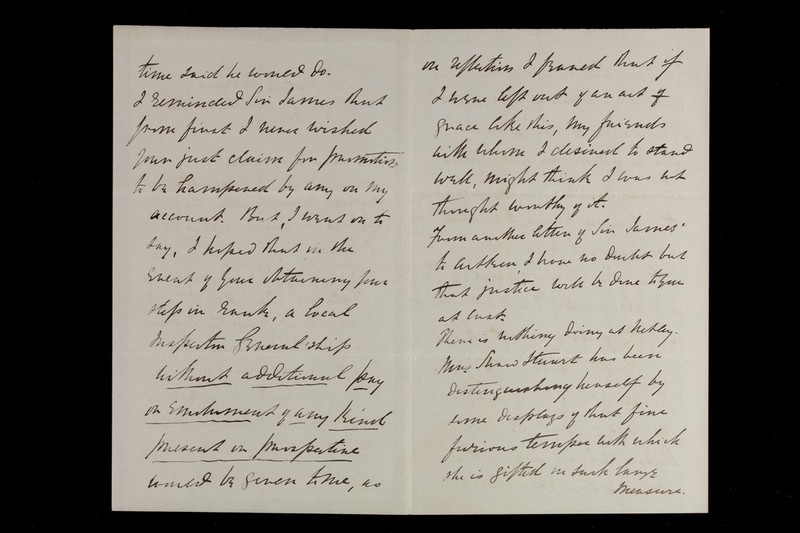 time said he would do.
I reminded Sir James that
from first I never wished
your just claim for promotion
to be hampered by any on my
account. But, I went on to
say, I hoped that in the
event of your obtaining your
step in rank, a local
Inspector General'ship
without additional pay
or emolument of any kind
present or prospective
would be given to me, as
on reflection I feared that if
I were left out of an act of
grace like this, my friends
with whom I desired to stand
well, might think I was not
thought worthy of it.
From another letter of Sir James'
to I have no doubt but
that justice will be done to you
at last.
There is nothing doing at Netley.
Mrs Shaw Stewart has been
distinguishing herself by
some displays of that fine
furious temper with which
she is gifted in such large
measure.